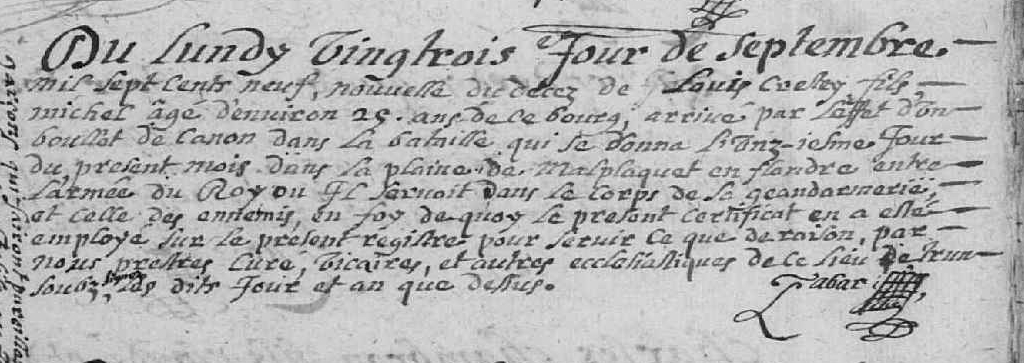 Du Lundy Vingtrois e Jour de Septembre.
mil sept Cents neuf, nouvelle du decez de Louis Crestey, fils,
michel âgé d'environ 25. ans de ce bourg, arrivé par L'effet d'on
boullet de Canon dans La bataille qui se donna L'onz-iesme Jour
du, present mois dans la plaine de Malplaquet en flandre entre
L'armée du Roy ou Jl servoit dans le Corps de sa geandarmerie,
et Celle des ennemis, en foy de quoy Le present Certificat en a esté
employé sur Le present registre pour servir Ce que de raison, par
nous prestres Curé, Vicaires, et autres ecclesiastiques de ce lieu De Trun
soubz signez, Les dits Jour et an que dessus.
Labar